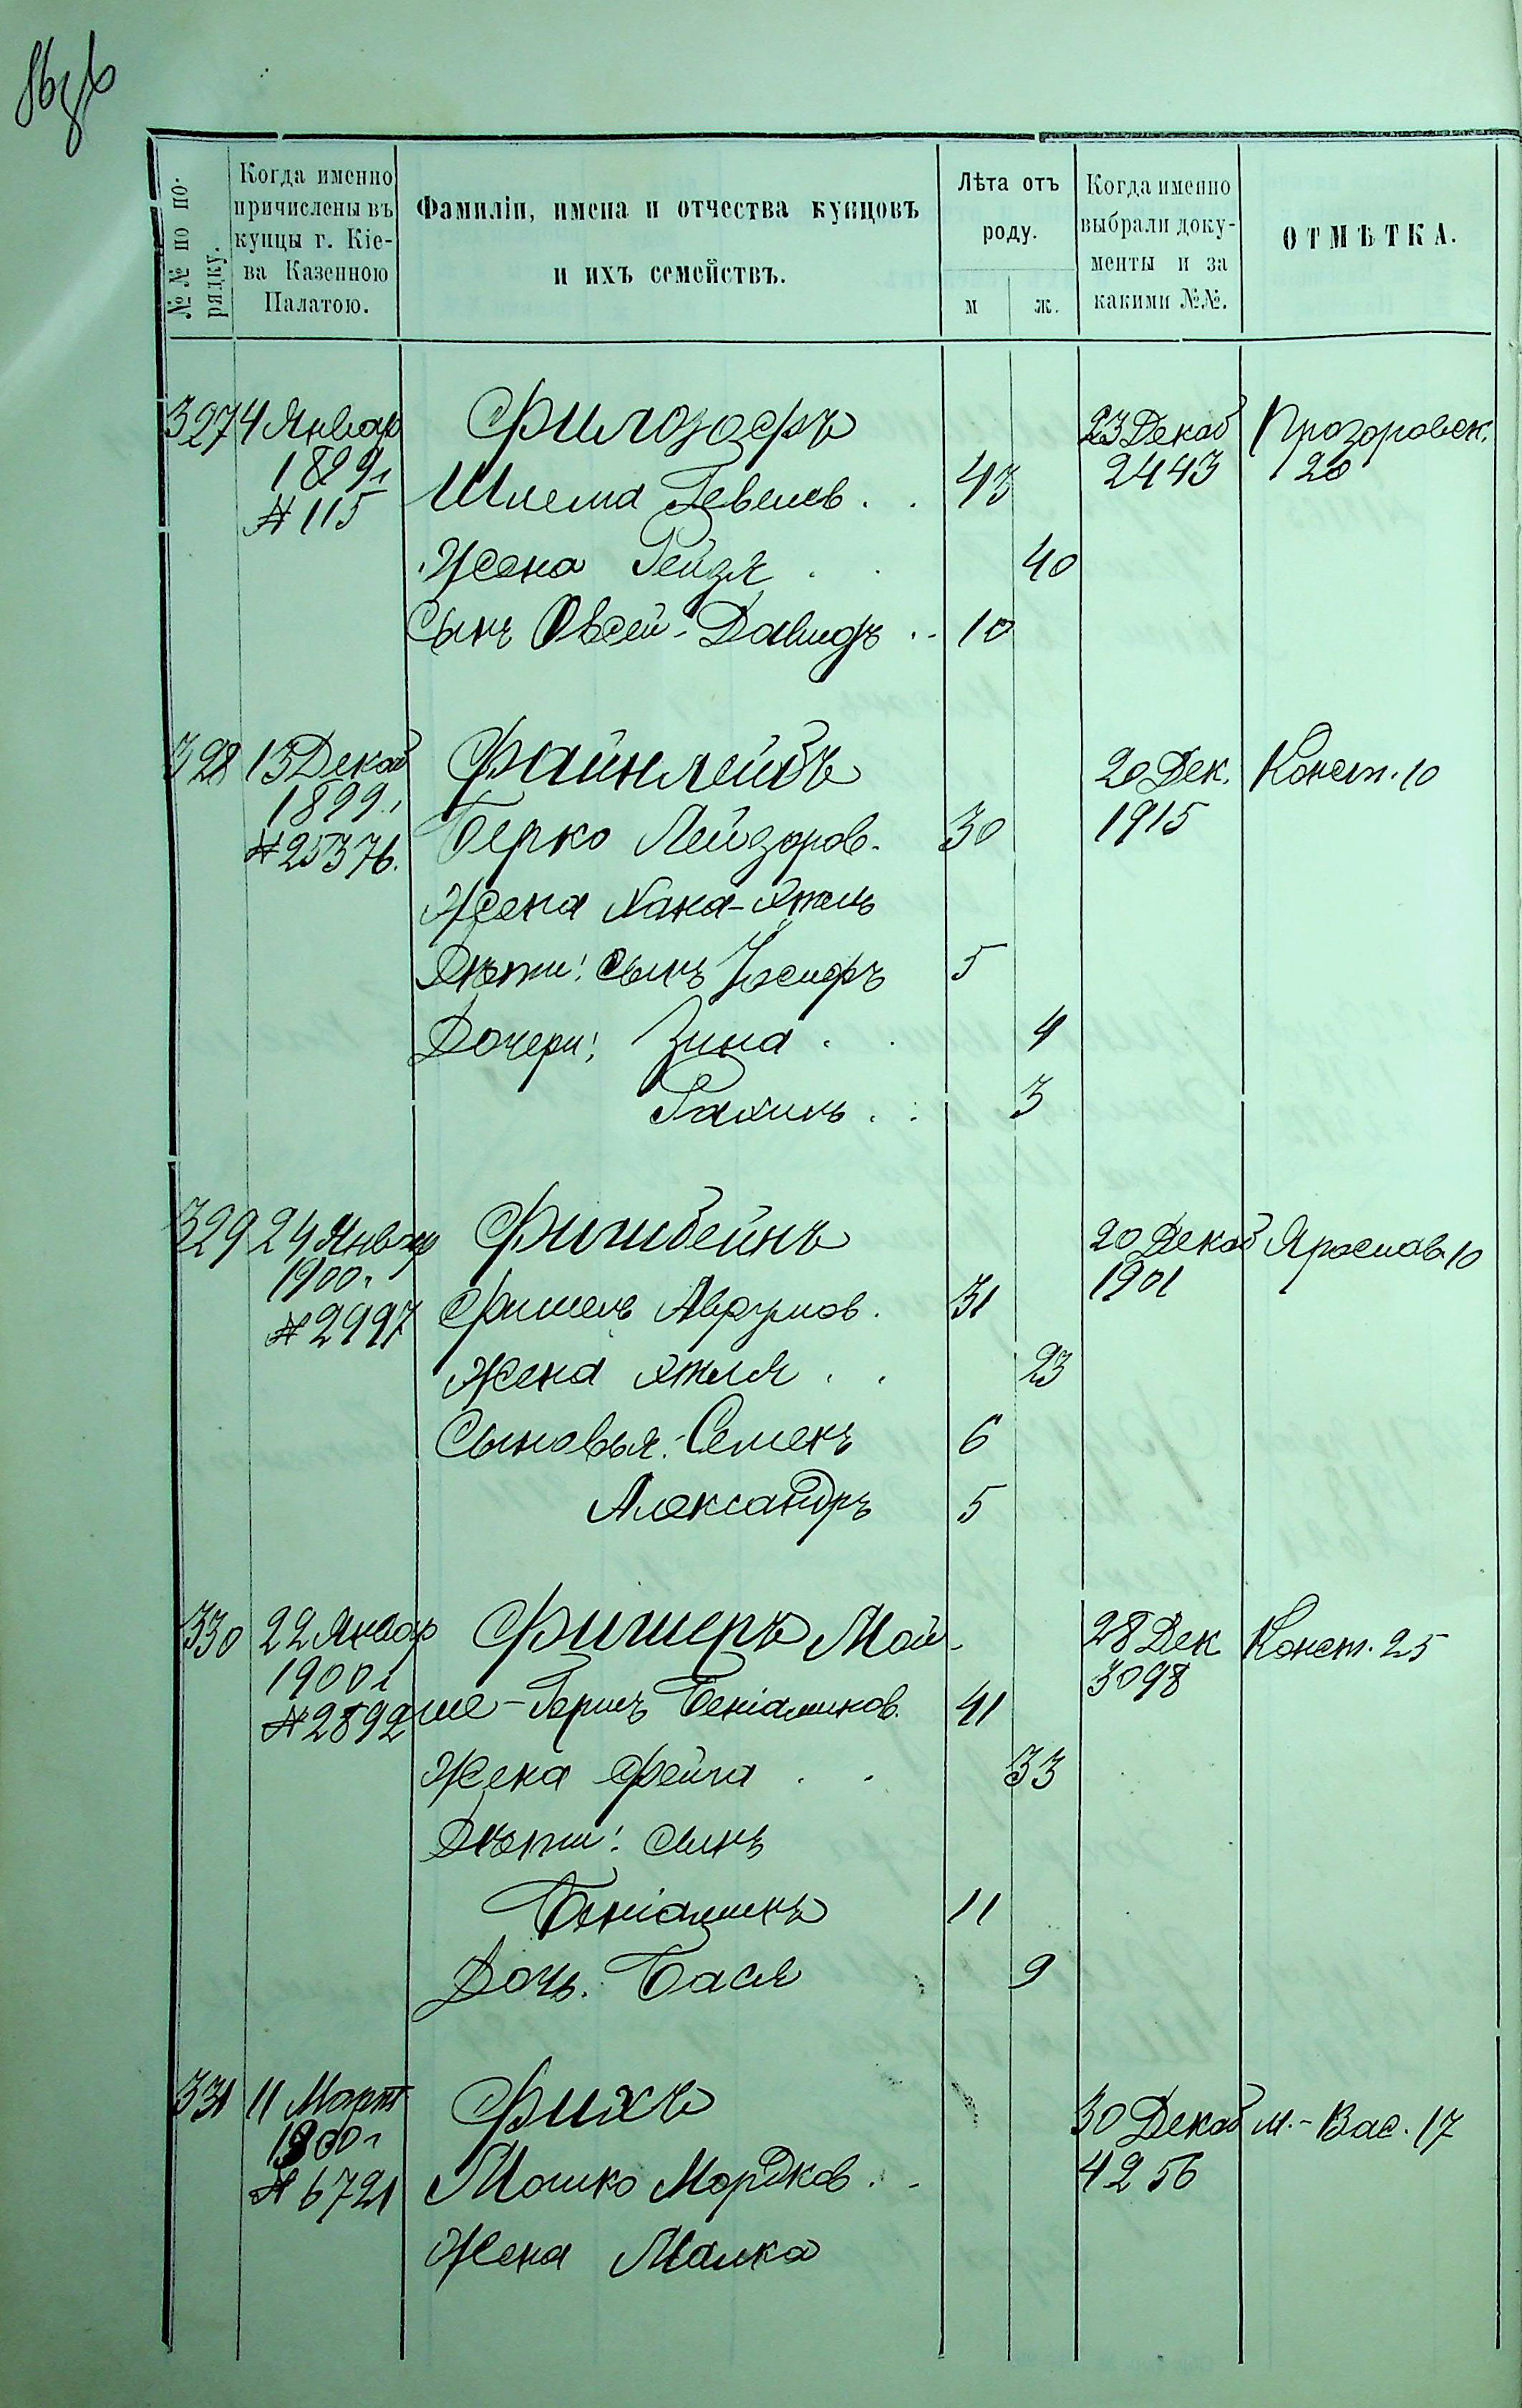 86 об
№№ по по-
рядку.
Когда именно
причислены въ
купцы г. Кіе-
ва Казенною
Палатою.
Фамиліи, имена и отчества купцовъ
и ихъ семействъ.
Лѣта отъ
роду.
м ж.
Когда именно
выбрали доку-
менты и за
какими №№.
ОТМѢТКА.
327 4 Январ Филозофъ 23 Декаб Прозоровск.
189 г Шлема Гевелев. 43 2443 20
№ 115
Жена Рейзя 40
Сынъ Овсей-Давидъ 10
328 13 Декаб Файнлейбъ 20 Дек. Конст. 10
1899 г Берко Лейзоров. 30 1915
№ 25376.
Жена Хана-Этель
Дѣти: сынъ Іосифъ 5
Дочери: Зина 4
Рахиль 3
329 24 Январ Фишбейнъ 20 Декаб Ярослав 10
1900 г Фишель Аврумов. 31 1901
№ 2997
Жена Этля 23
Сыновья: Семенъ 6
Александръ 5
330 22 Январ Фишеръ Мой- 28 Дек Конст. 25
1900 г 3098
№ 2892 ше-Гершъ Беніаминов. 41
Жена Фейга 33
Дѣти: сынъ
Беніаминъ 11
Дочь. Бася 9
331 11 Март Фихъ 30 Декаб М.-Вас. 17
1900 г 4256
№ 6721 Мошко Мордков.
Жена Малка